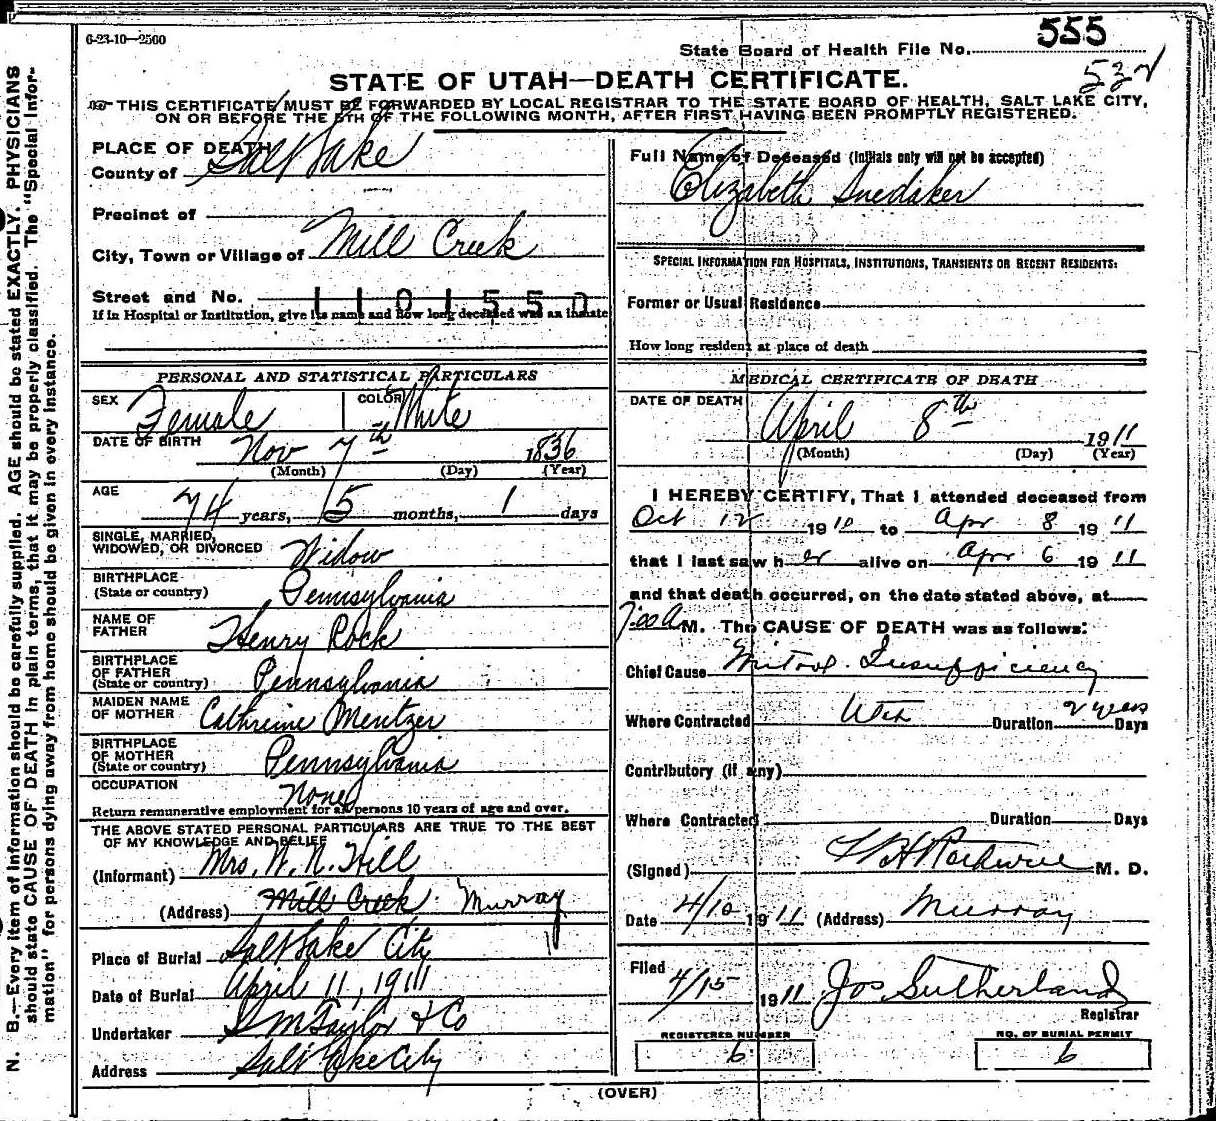 6-23-10—2500
State Board of Health File No. 555
532
STATE OF UTAH—DEATH CERTIFICATE.
THIS CERTIFICATE MUST BE FORWARDED BY LOCAL REGISTRAR TO THE STATE BOARD OF HEALTH, SALT LAKE CITY,
ON OR BEFORE THE 5TH OF THE FOLLOWING MONTH, AFTER FIRST HAVING BEEN PROMPTLY REGISTERED.
PLACE OF DEATH
County of Salt Lake
Precinct of
City, Town or Village of Mill Creek
Street and No.
1101550
If in Hospital or Institution, give its name and how long deceased was an inmate
PERSONAL AND STATISTICAL PARTICULARS
SEX Female COLOR White
DATE OF BIRTH Nov 7th 1836
(Month) (Day) (Year)
AGE 74 years, 5 months, 1 days
SINGLE, MARRIED,
WIDOWED, OR DIVORCED Widow
BIRTHPLACE
(State or country) Pennsylvania
NAME OF
FATHER Henry Rock
BIRTHPLACE
OF FATHER
(State or country) Pennsylvania
MAIDEN NAME
OF MOTHER Cathreine Mentzer
BIRTHPLACE
OF MOTHER
(State or country) Pennsylvania
OCCUPATION None
Return remunerative employment for all persons 10 years of age and over.
THE ABOVE STATED PERSONAL PARTICULARS ARE TRUE TO THE BEST
OF MY KNOWLEDGE AND BELIEF
(Informant) Mrs. W. N. Hill
(Address) Mill Creek Murray
Place of Burial Salt Lake City
Date of Burial April 11, 1911
Undertaker S M Taylor & Co
Address Salt Lake City
Full Name of Deceased (initials only will not be accepted)
Elizabeth Snedaker
SPECIAL INFORMATION FOR HOSPITALS, INSTITUTIONS, TRANSIENTS OR RECENT RESIDENTS:
Former or Usual Residence
How long resident at place of death
MEDICAL CERTIFICATE OF DEATH
DATE OF DEATH
April 8th 1911
(Month) (Day) (Year)
I HEREBY CERTIFY, That I attended deceased from
Oct 12 1910 to Apr 8 1911
that I last saw her alive on Apr 6 1911
and that death occurred, on the date stated above, at
7:00 A M. The CAUSE OF DEATH was as follows:
Chief Cause Mitral Insufficiency
Where Contracted Utah Duration 2 years Days
Contributory (if any)
Where Contracted Duration Days
(Signed) M. D.
Date 4/10 1911 (Address) Murray
Filed 4/15 1911 Jos Sutherland
Registrar
REGISTERED NUMBER
6
NO. OF BURIAL PERMIT
6
(OVER)
N. B.—Every item of information should be carefully supplied. AGE should be stated EXACTLY. PHYSICIANS
should state CAUSE OF DEATH in plain terms, that it may be properly classified. The "Special Infor-
mation" for persons dying away from home should be given in every instance.